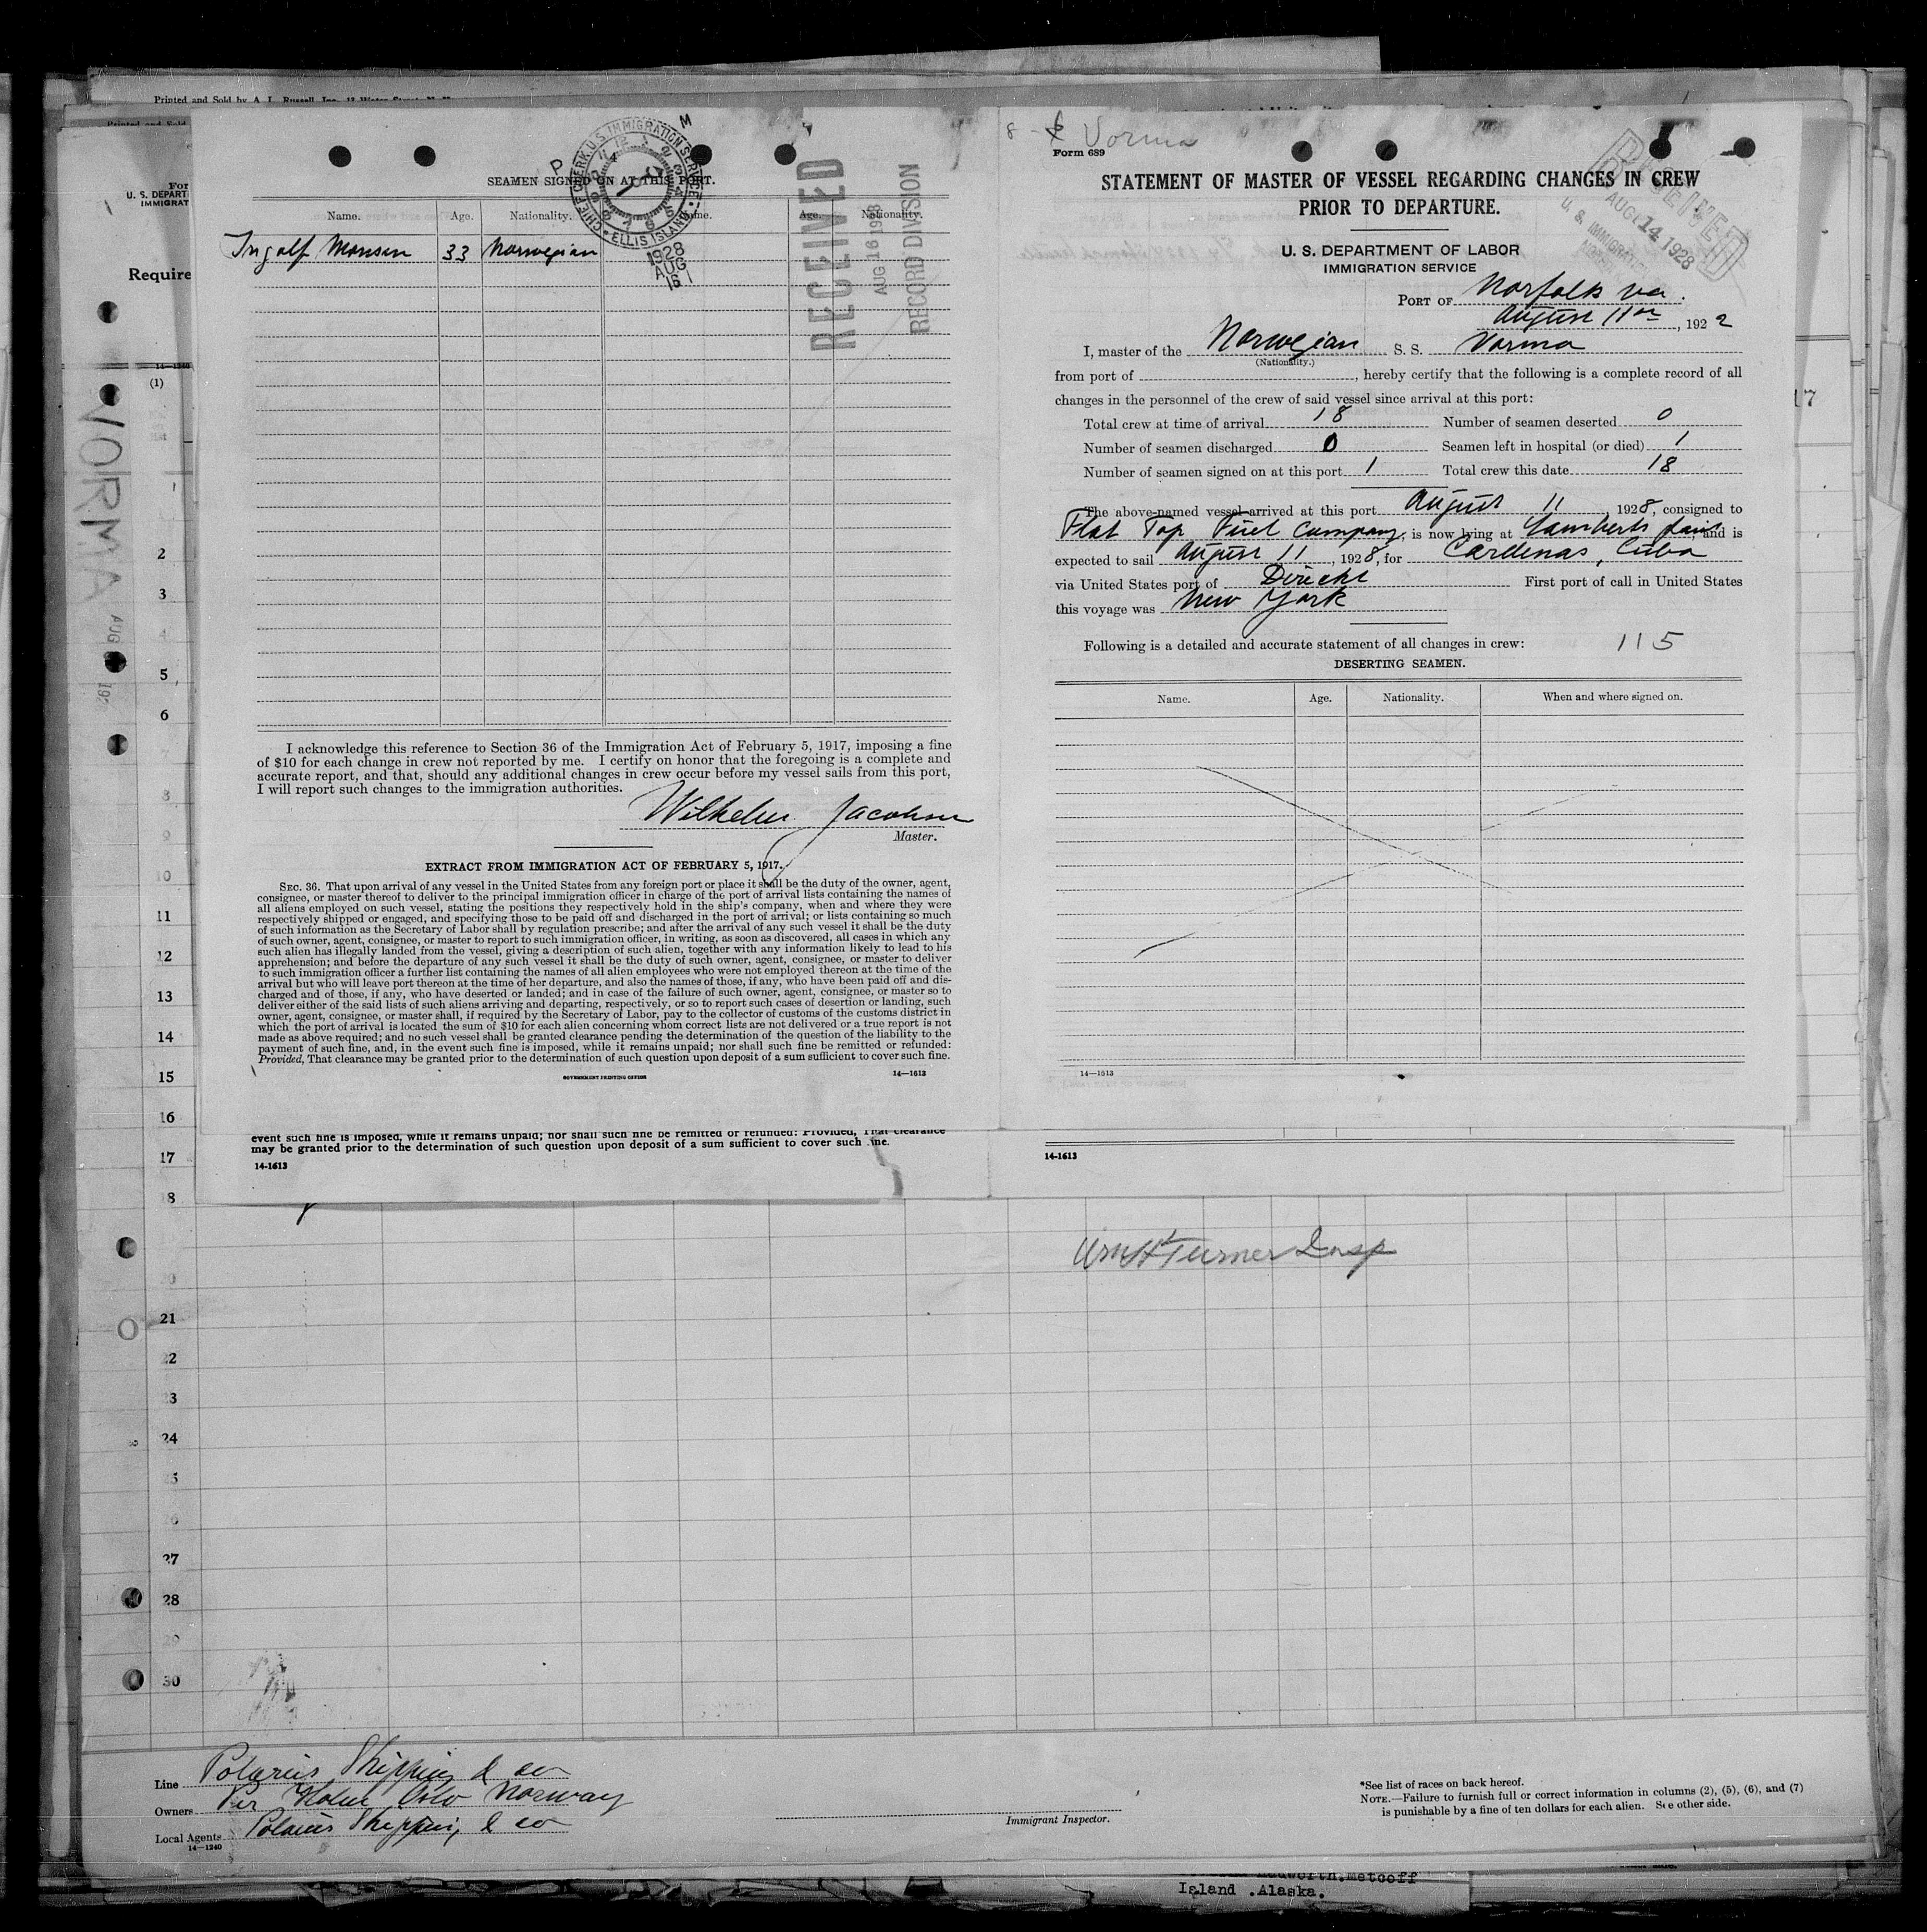 Printed and Sold by A. L. Russell, Inc.
Printed and Sold
For
U. S. DEPART
IMMIGRAT
Require
14—1240
(1)
VORMA
AUG
P M
CHIEF CLERK U.S. IMMIGRATION SERVICE
ELLIS ISLAND
1928
AUG
16
RECEIVED
AUG 16 1928
RECORD DIVISION
SEAMEN SIGNED ON AT THIS PORT.
Name. Age. Nationality. Name. Age. Nationality.
Ingolf Monsen 33 Norwegian
I acknowledge this reference to Section 36 of the Immigration Act of February 5, 1917, imposing a fine
of $10 for each change in crew not reported by me. I certify on honor that the foregoing is a complete and
accurate report, and that, should any additional changes in crew occur before my vessel sails from this port,
I will report such changes to the immigration authorities.
Wilhelm Jacobsen
Master.
EXTRACT FROM IMMIGRATION ACT OF FEBRUARY 5, 1917.
SEC. 36. That upon arrival of any vessel in the United States from any foreign port or place it shall be the duty of the owner, agent,
consignee, or master thereof to deliver to the principal immigration officer in charge of the port of arrival lists containing the names of
all aliens employed on such vessel, stating the positions they respectively hold in the ship's company, when and where they were
respectively shipped or engaged, and specifying those to be paid off and discharged in the port of arrival; or lists containing so much
of such information as the Secretary of Labor shall by regulation prescribe; and after the arrival of any such vessel it shall be the duty
of such owner, agent, consignee, or master to report to such immigration officer, in writing, as soon as discovered, all cases in which any
such alien has illegally landed from the vessel, giving a description of such alien, together with any information likely to lead to his
apprehension; and before the departure of any such vessel it shall be the duty of such owner, agent, consignee, or master to deliver
to such immigration officer a further list containing the names of all alien employees who were not employed thereon at the time of the
arrival but who will leave port thereon at the time of her departure, and also the names of those, if any, who have been paid off and dis-
charged and of those, if any, who have deserted or landed; and in case of the failure of such owner, agent, consignee, or master so to
deliver either of the said lists of such aliens arriving and departing, respectively, or so to report such cases of desertion or landing, such
owner, agent, consignee, or master shall, if required by the Secretary of Labor, pay to the collector of customs of the customs district in
which the port of arrival is located the sum of $10 for each alien concerning whom correct lists are not delivered or a true report is not
made as above required; and no such vessel shall be granted clearance pending the determination of the question of the liability to the
payment of such fine, and, in the event such fine is imposed, while it remains unpaid; nor shall such fine be remitted or refunded:
Provided, That clearance may be granted prior to the determination of such question upon deposit of a sum sufficient to cover such fine.
GOVERNMENT PRINTING OFFICE 14—1613
event such fine is imposed, while it remains unpaid; nor shall such fine be remitted or refunded: Provided, That clearance
may be granted prior to the determination of such question upon deposit of a sum sufficient to cover such fine.
14-1613
8- Vorma
Form 689
RECEIVED
AUG 14 1928
U. S. IMMIGRATION
STATEMENT OF MASTER OF VESSEL REGARDING CHANGES IN CREW
PRIOR TO DEPARTURE.
U. S. DEPARTMENT OF LABOR
IMMIGRATION SERVICE
PORT OF Norfolk va.
August 11th, 1922
I, master of the Norwegian S. S. Vorma
(Nationality.)
from port of , hereby certify that the following is a complete record of all
changes in the personnel of the crew of said vessel since arrival at this port:
Total crew at time of arrival 18 Number of seamen deserted 0
Number of seamen discharged 0 Seamen left in hospital (or died) 1
Number of seamen signed on at this port 1 Total crew this date 18
The above-named vessel arrived at this port August 11, 1928, consigned to
Flat Top Fuel Company, is now lying at Lamberts point, and is
expected to sail August 11, 1928, for Cardenas, Cuba
via United States port of Direckt First port of call in United States
this voyage was New York
Following is a detailed and accurate statement of all changes in crew: 115
DESERTING SEAMEN.
Name. Age. Nationality. When and where signed on.
14—1613
14-1613
17
2
3
4
5
6
7
8
9
10
11
12
13
14
15
16
17
8
20
21
22
23
24
5
6
27
28
29
30
Wm H Turner Insp
Line Polarus Shipping & co
Owners Per Holm Oslo Norway
Local Agents Polarus Shipping & co
14—1240
Immigrant Inspector.
*See list of races on back hereof.
NOTE.—Failure to furnish full or correct information in columns (2), (5), (6), and (7)
is punishable by a fine of ten dollars for each alien. See other side.
Island .Alaska.